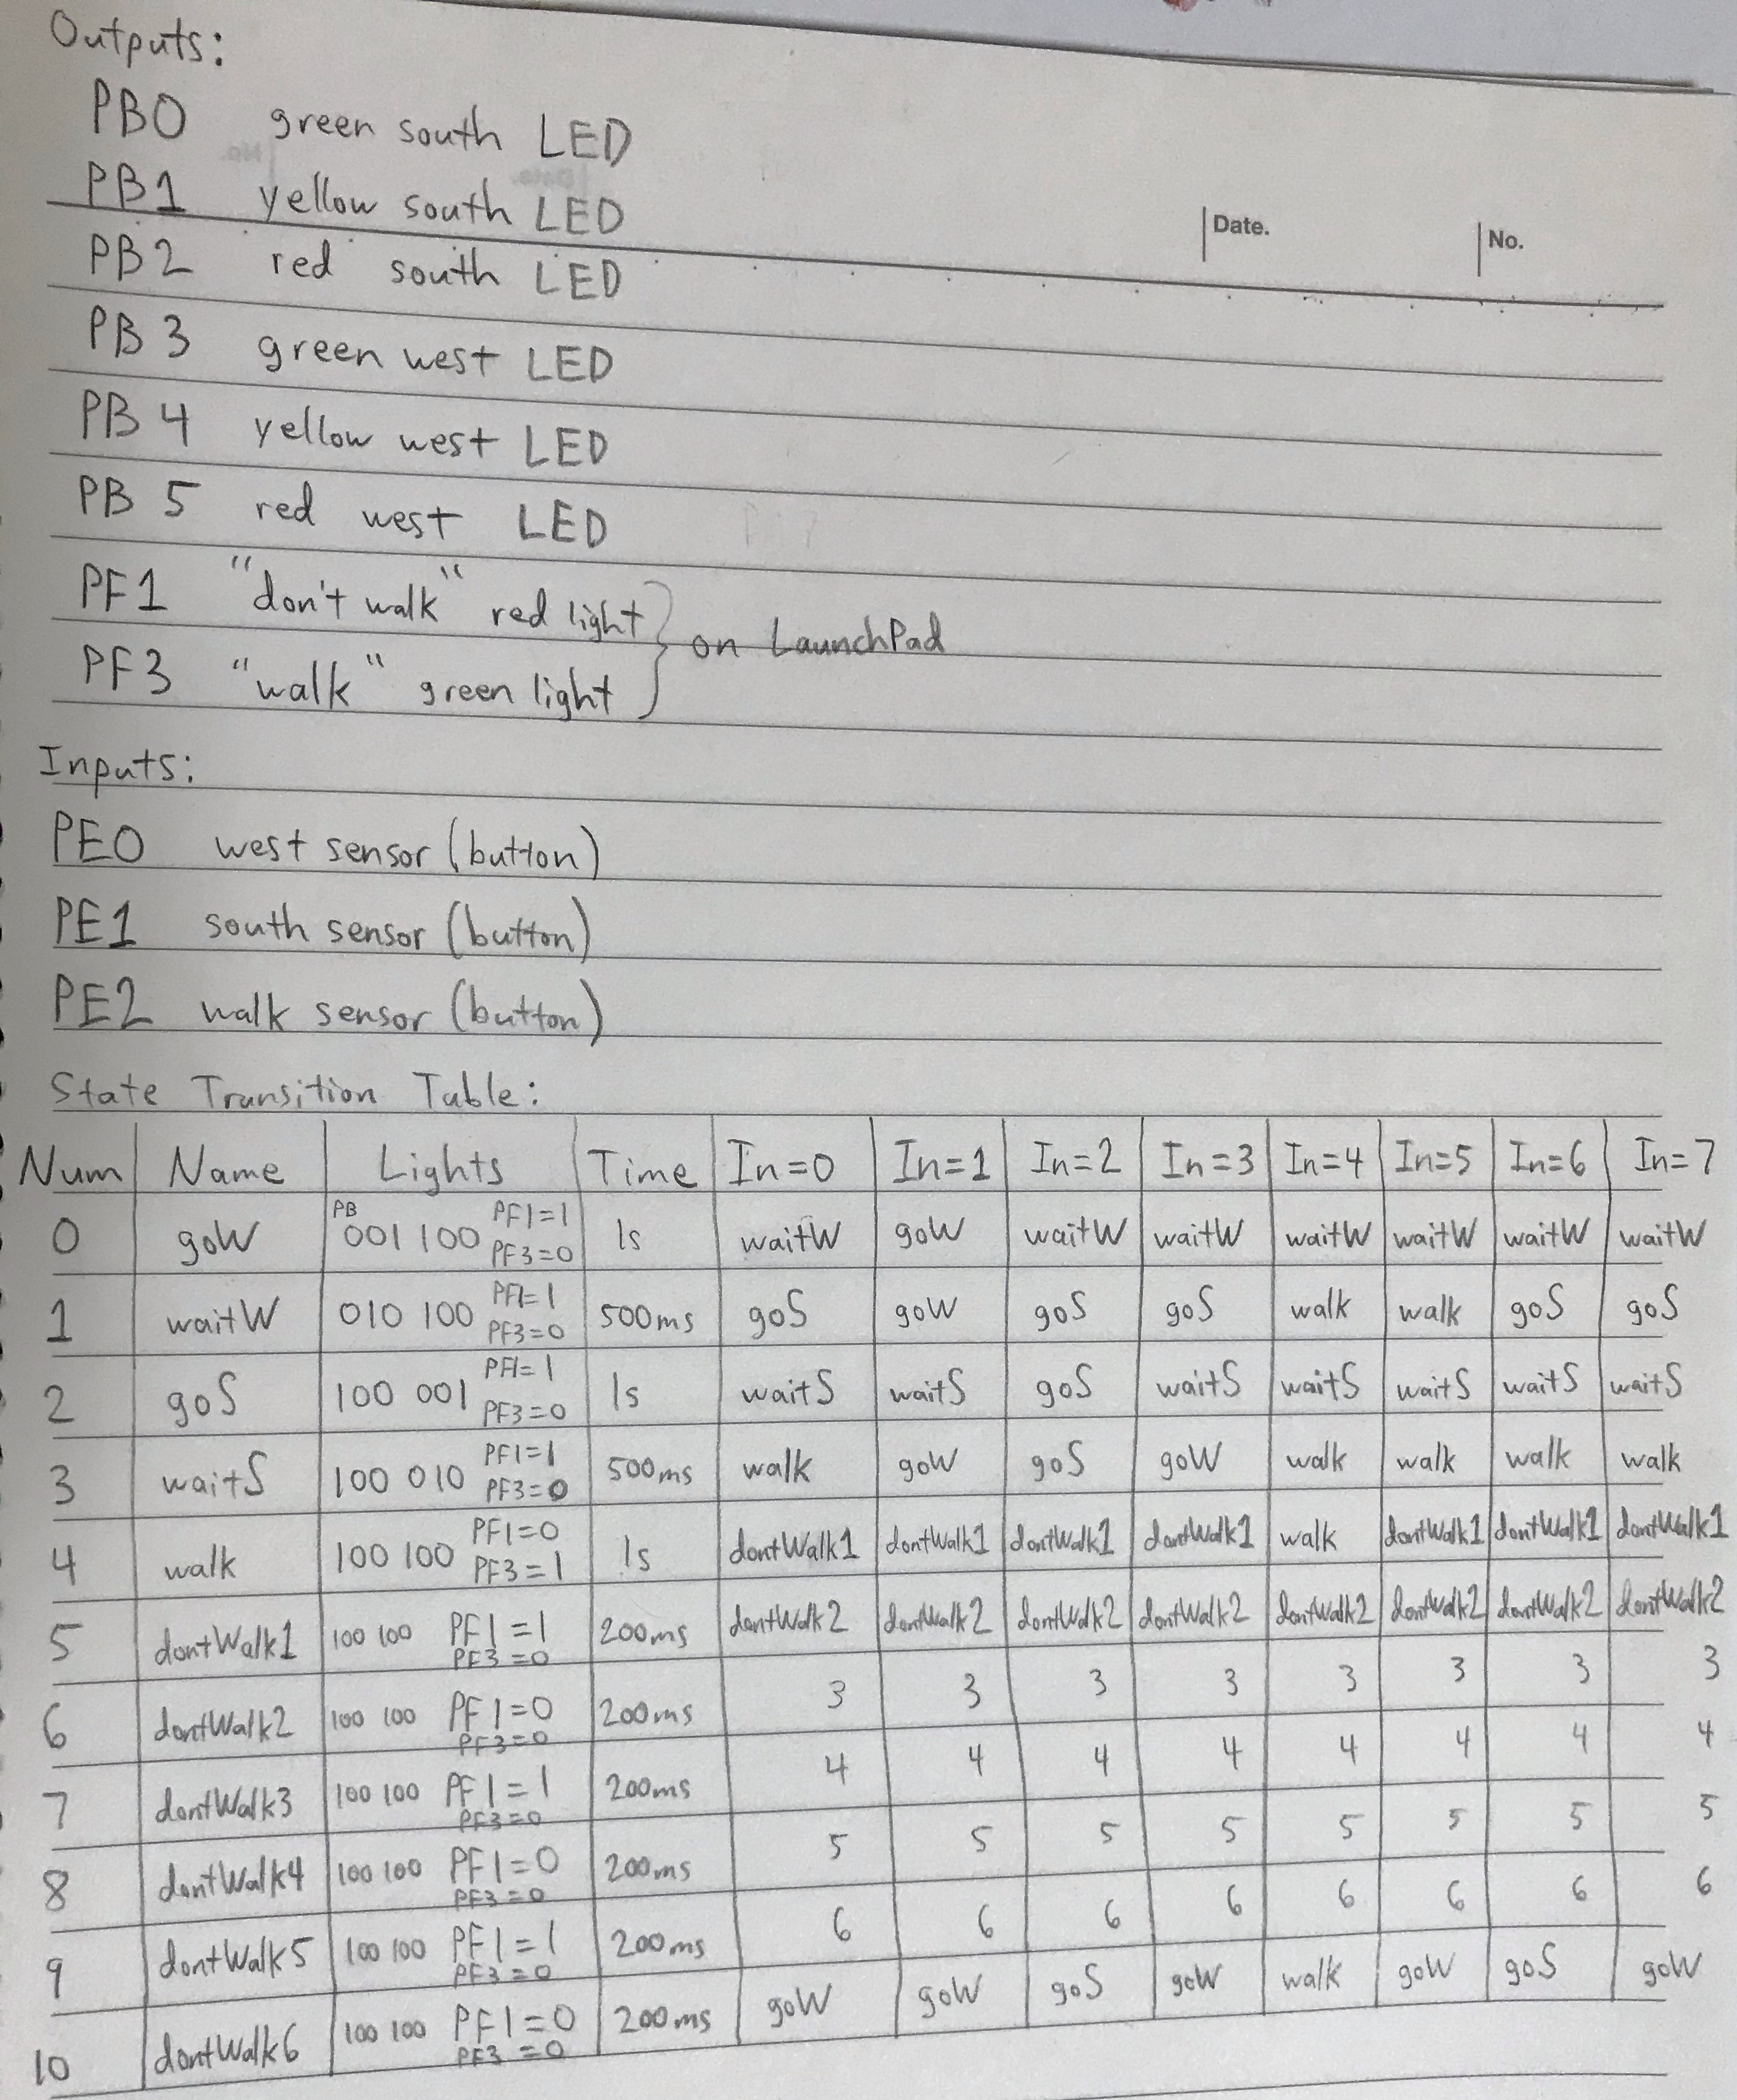 Outputs:
PB0 green south LED
PB1 yellow south LED
Date. No.
PB2 red south LED
PB3 green west LED
PB4 yellow west LED
PB5 red west LED
PF1 "don't walk" red light
on LaunchPad
PF3 "walk" green light
Inputs:
PE0 west sensor (button)
PE1 south sensor (button)
PE2 walk sensor (button)
State Transition Table:
Num Name Lights Time In=0 In=1 In=2 In=3 In=4 In=5 In=6 In=7
0 goW PB 001 100 PF1=1 PF3=0 1s waitW goW waitW waitW waitW waitW waitW waitW
1 waitW 010 100 PF1=1 PF3=0 500ms goS goW goS goS walk walk goS goS
2 goS 100 001 PF1=1 PF3=0 1s waitS waitS goS waitS waitS waitS waitS waitS
3 waitS 100 010 PF1=1 PF3=0 500ms walk goW goS goW walk walk walk walk
4 walk 100 100 PF1=0 PF3=1 1s dontWalk1 dontWalk1 dontWalk1 dontWalk1 walk dontWalk1 dontWalk1 dontWalk1
5 dontWalk1 100 100 PF1=1 PF3=0 200ms dontWalk2 dontWalk2 dontWalk2 dontWalk2 dontWalk2 dontWalk2 dontWalk2 dontWalk2
6 dontWalk2 100 100 PF1=0 PF3=0 200ms 3 3 3 3 3 3 3 3
7 dontWalk3 100 100 PF1=1 PF3=0 200ms 4 4 4 4 4 4 4 4
8 dontWalk4 100 100 PF1=0 PF3=0 200ms 5 5 5 5 5 5 5 5
9 dontWalk5 100 100 PF1=1 PF3=0 200ms 6 6 6 6 6 6 6 6
10 dontWalk6 100 100 PF1=0 PF3=0 200ms goW goW goS goW walk goW goS goW